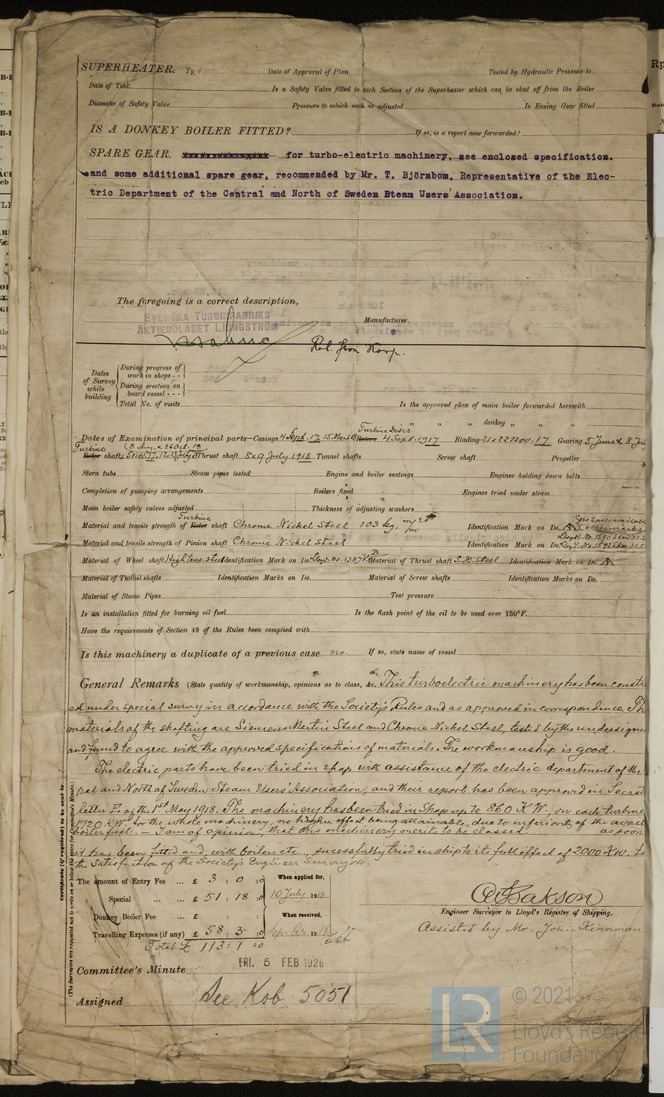 SUPERHEATER. Type Date of Approval of Plan Tested by Hydraulic Pressure to
Date of Test Is a Safety Valve fitted to each Section of the Superheater which can be shut off from the Boiler
Diameter of Safety Valve Pressure to which each is adjusted Is Easing Gear fitted
IS A DONKEY BOILER FITTED? If so, is a report now forwarded?
SPARE GEAR. for turbo-electric machinery, see enclosed specification.
and some additional spare gear, recommended by Mr. T. Björnbom, Representative of the Elec-
tric Department of the Central and North of Sweden Steam Users' Association.
The foregoing is a correct description,
SVENSKA TURBINFABRIKS
AKTIEBOLAGET LJUNGSTRÖM
Manufacturer.
Dates of Survey while building
During progress of work in shops - -
During erection on board vessel - - -
Total No. of visits
Is the approved plan of main boiler forwarded herewith
" " " donkey " " "
Turbine Discs
Dates of Examination of principal parts—Casings 4 Sept. 17, 15 Rotors 4 Sept. 1917 Blading 21 & 22 Nov. 17 Gearing 5 June & 8 Jul
Turbine
Rotor shaft Thrust shaft 8 & 9 July 1918 Tunnel shafts Screw shaft Propeller
Stern tube Steam pipes tested Engine and boiler seatings Engines holding down bolts
Completion of pumping arrangements Boilers fixed Engines tried under steam
Main boiler safety valves adjusted Thickness of adjusting washers
Turbine
Material and tensile strength of Rotor shaft Chrome Nickel Steel 103 kg. Identification Mark on Do.
Material and tensile strength of Pinion shaft Chrome Nickel Steel Identification Mark on Do.
Material of Wheel shaft High tens. steel Identification Mark on Do. Lloyd's No. 1387 Material of Thrust shaft S.M. Steel Identification Mark on Do.
Material of Tunnel shafts Identification Marks on Do. Material of Screw shafts Identification Marks on Do.
Material of Steam Pipes Test pressure
Is an installation fitted for burning oil fuel Is the flash point of the oil to be used over 150°F.
Have the requirements of Section 49 of the Rules been complied with
Is this machinery a duplicate of a previous case no. If so, state name of vessel
General Remarks (State quality of workmanship, opinions as to class, &c. This turboelectric machinery has been constr
ed under special survey in accordance with the Society's Rules and as approved in correspondence. The
materials of the shafting are Siemens Martin Steel and Chrome Nickel Steel, tested by the undersigne
and found to agree with the approved specifications of materials. The workmanship is good.
The electric parts have been tried in shop with assistance of the electric department of the
and North of Sweden Steam Users' Association, and their report has been approved in Secret
letter E. of the 1st May 1918. The machinery has been tried in shop up to 860 K.W. on each turbine
1720 K.W. for the whole machinery, no higher effect being attainable, due to inferiority of the avail
boiler fuel. — I am of opinion, that this machinery merits to be classed as soon
it has been fitted and, with boilers etc., successfully tried in ship to its full effect of 2000 K.W. to
the Satisfaction of the Society's Engineer Surveyor.
The amount of Entry Fee ... £ 3 : 0 : 0 When applied for,
Special ... £ 51 : 18 : 0 10 July 1918
Donkey Boiler Fee ... £ : : When received,
Travelling Expenses (if any) £ 58 : 3 : 0
Total £ 113 : 1 : 0
Engineer Surveyor to Lloyd's Register of Shipping.
Assisted by Mr. John
Committee's Minute FRI. 5 FEB 1926
Assigned See Kob 5051
© 2021
Lloyd's Register
Foundation